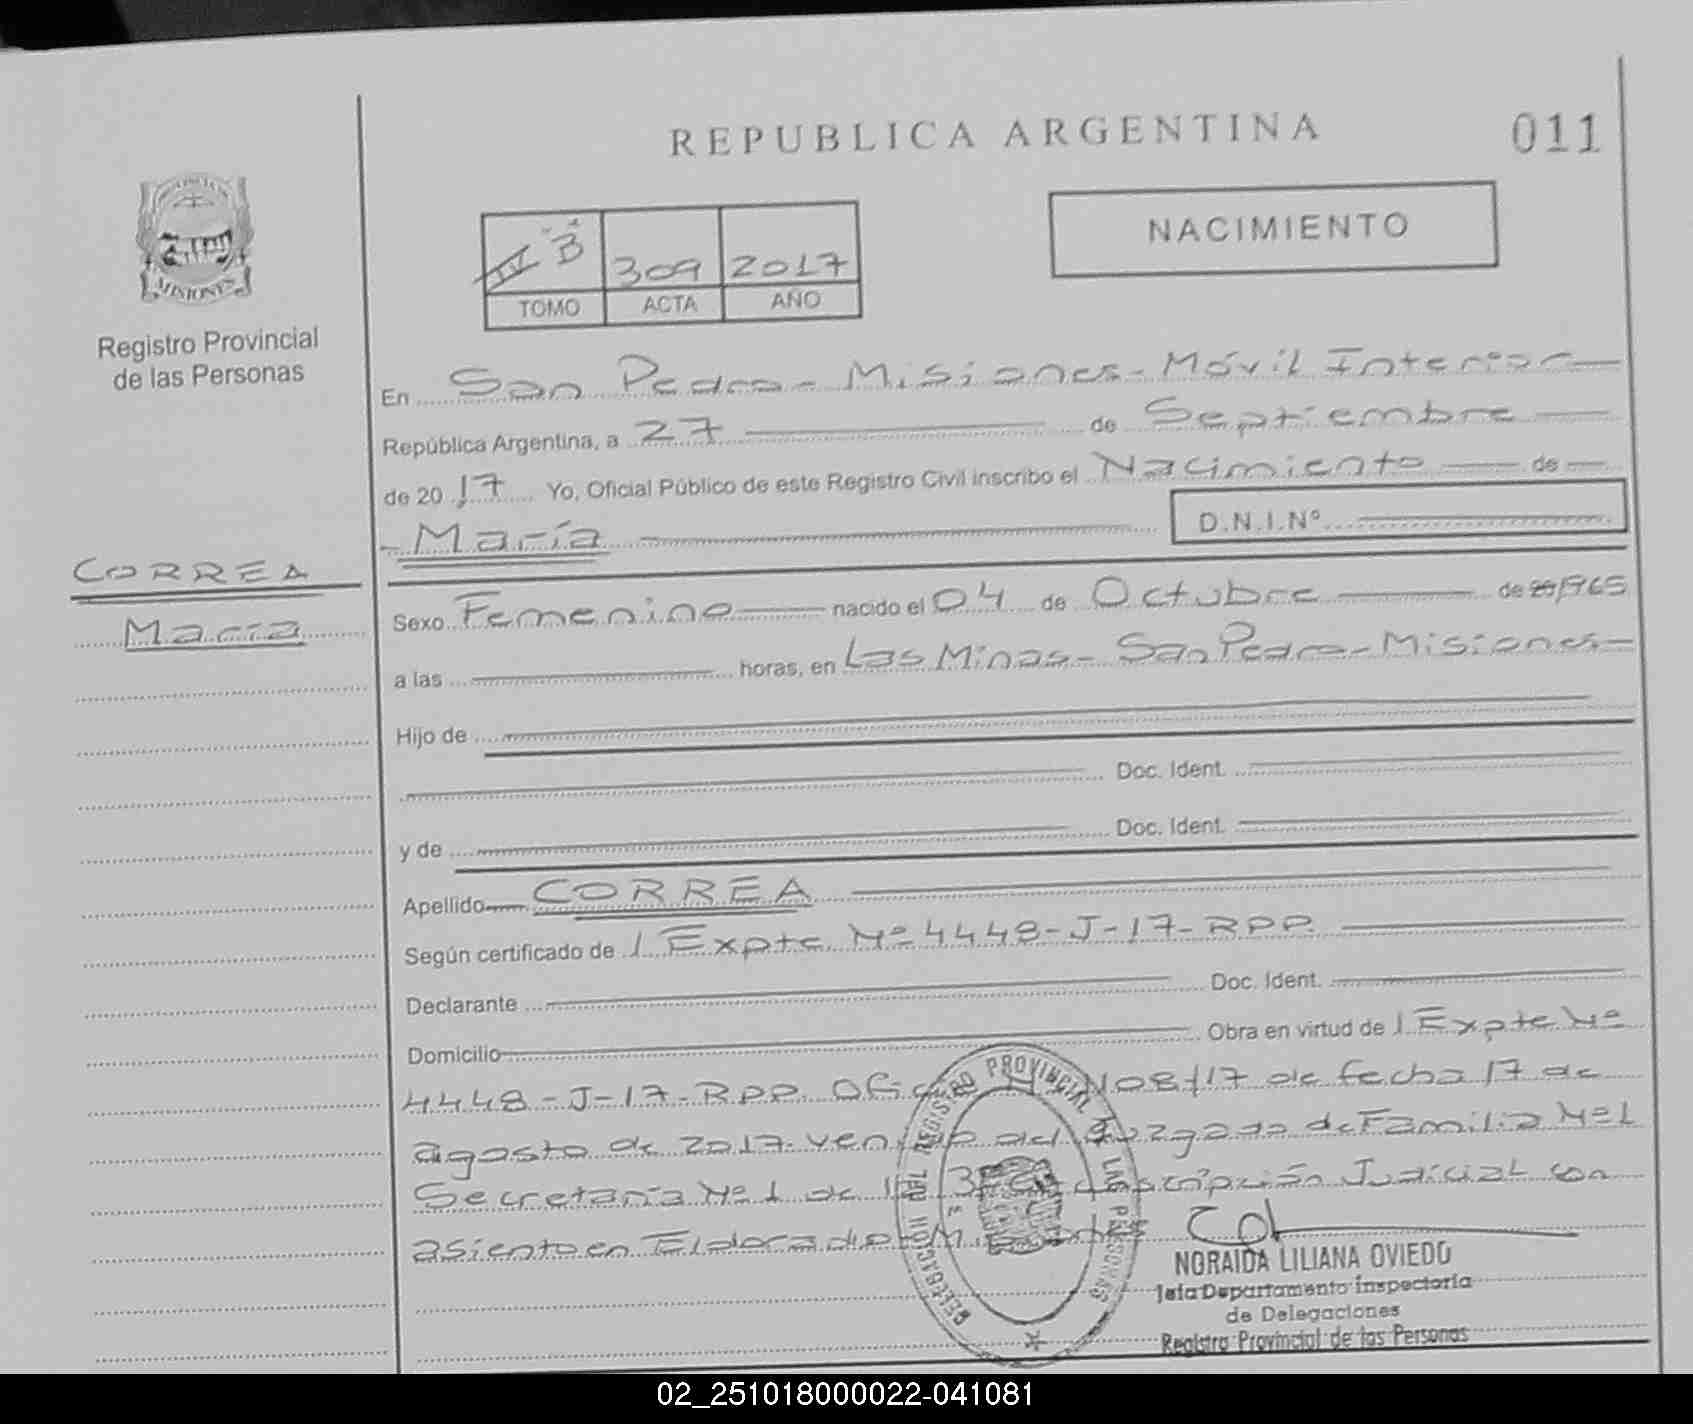 REPUBLICA ARGENTINA
011
PROVINCIA DE
MISIONES
Registro Provincial
de las Personas
"B"
309
2017
TOMO
ACTA
AÑO
NACIMIENTO
En San Pedro - Misiones - Móvil Interior
República Argentina, a 27 de Septiembre
de 2017 Yo, Oficial Público de este Registro Civil inscribo el Nacimiento de
María
D.N.I.Nº
CORREA
María
Sexo Femenino nacido el 04 de Octubre de 1965
a las horas, en Las Minas - San Pedro - Misiones -
Hijo de
Doc. Ident.
y de Doc. Ident.
Apellido CORREA
Según certificado de 1 Expte Nº 4448-J-17-RPP.
Declarante Doc. Ident.
Domicilio Obra en virtud de 1 Expte Nº
4448-J-17-RPP. 1108/17 de fecha 17 de
agosto de 2017 del Juzgado de Familia Nº 1
Secretaría Nº 1 de Circunscripción Judicial con
asiento en Eldorado
DELEGACION REGISTRO PROVINCIAL DE LAS PERSONAS
NORAIDA LILIANA OVIEDO
Jefa Departamento Inspectoría
de Delegaciones
Registro Provincial de las Personas
02_251018000022-041081